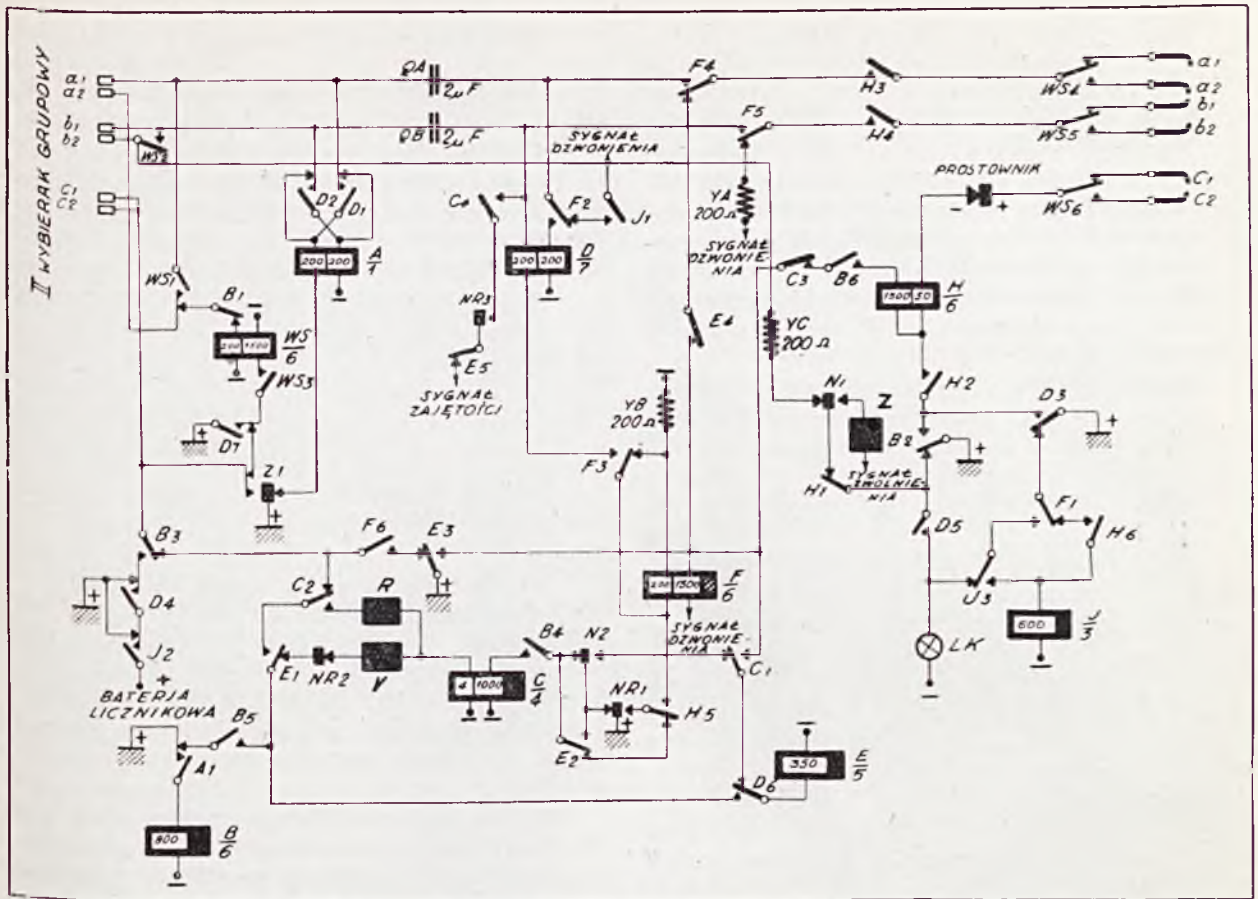 II WYBIERAK GRUPOWY
a1
a2
b1
b2
C1
C2
WS2
QA
2μF
QB
2μF
F4
F5
H3
H4
WS4
WS5
WS6
a1
a2
b1
b2
C1
C2
SYGNAŁ
DZWONIENIA
PROSTOWNIK
- +
D2
D1
200 200
A
1
C4
F2
J1
200 200
D
7
YA
200Ω
SYGNAŁ
DZWONIE-
NIA
C3
B6
1500 50
H
6
WS1
B1
200 1500
WS
6
WS3
D7
Z1
NR3
E5
SYGNAŁ
ZAJĘTOŚCI
E4
YB
200Ω
F3
YC
200Ω
N1
Z
H1
SYGNAŁ
ZWOLNIE-
NIA
H2
B2
D3
D5
F1
H6
J3
600
J
3
LK
B3
F6
E3
C2
R
D4
J2
BATERJA
LICZNIKOWA
E1
NR2
V
4 1000
C
4
B4
N2
200 1500
F
6
SYGNAŁ
DZWONIE-
NIA
C1
NR1
H5
E2
B5
A1
800
B
6
D6
350
E
5